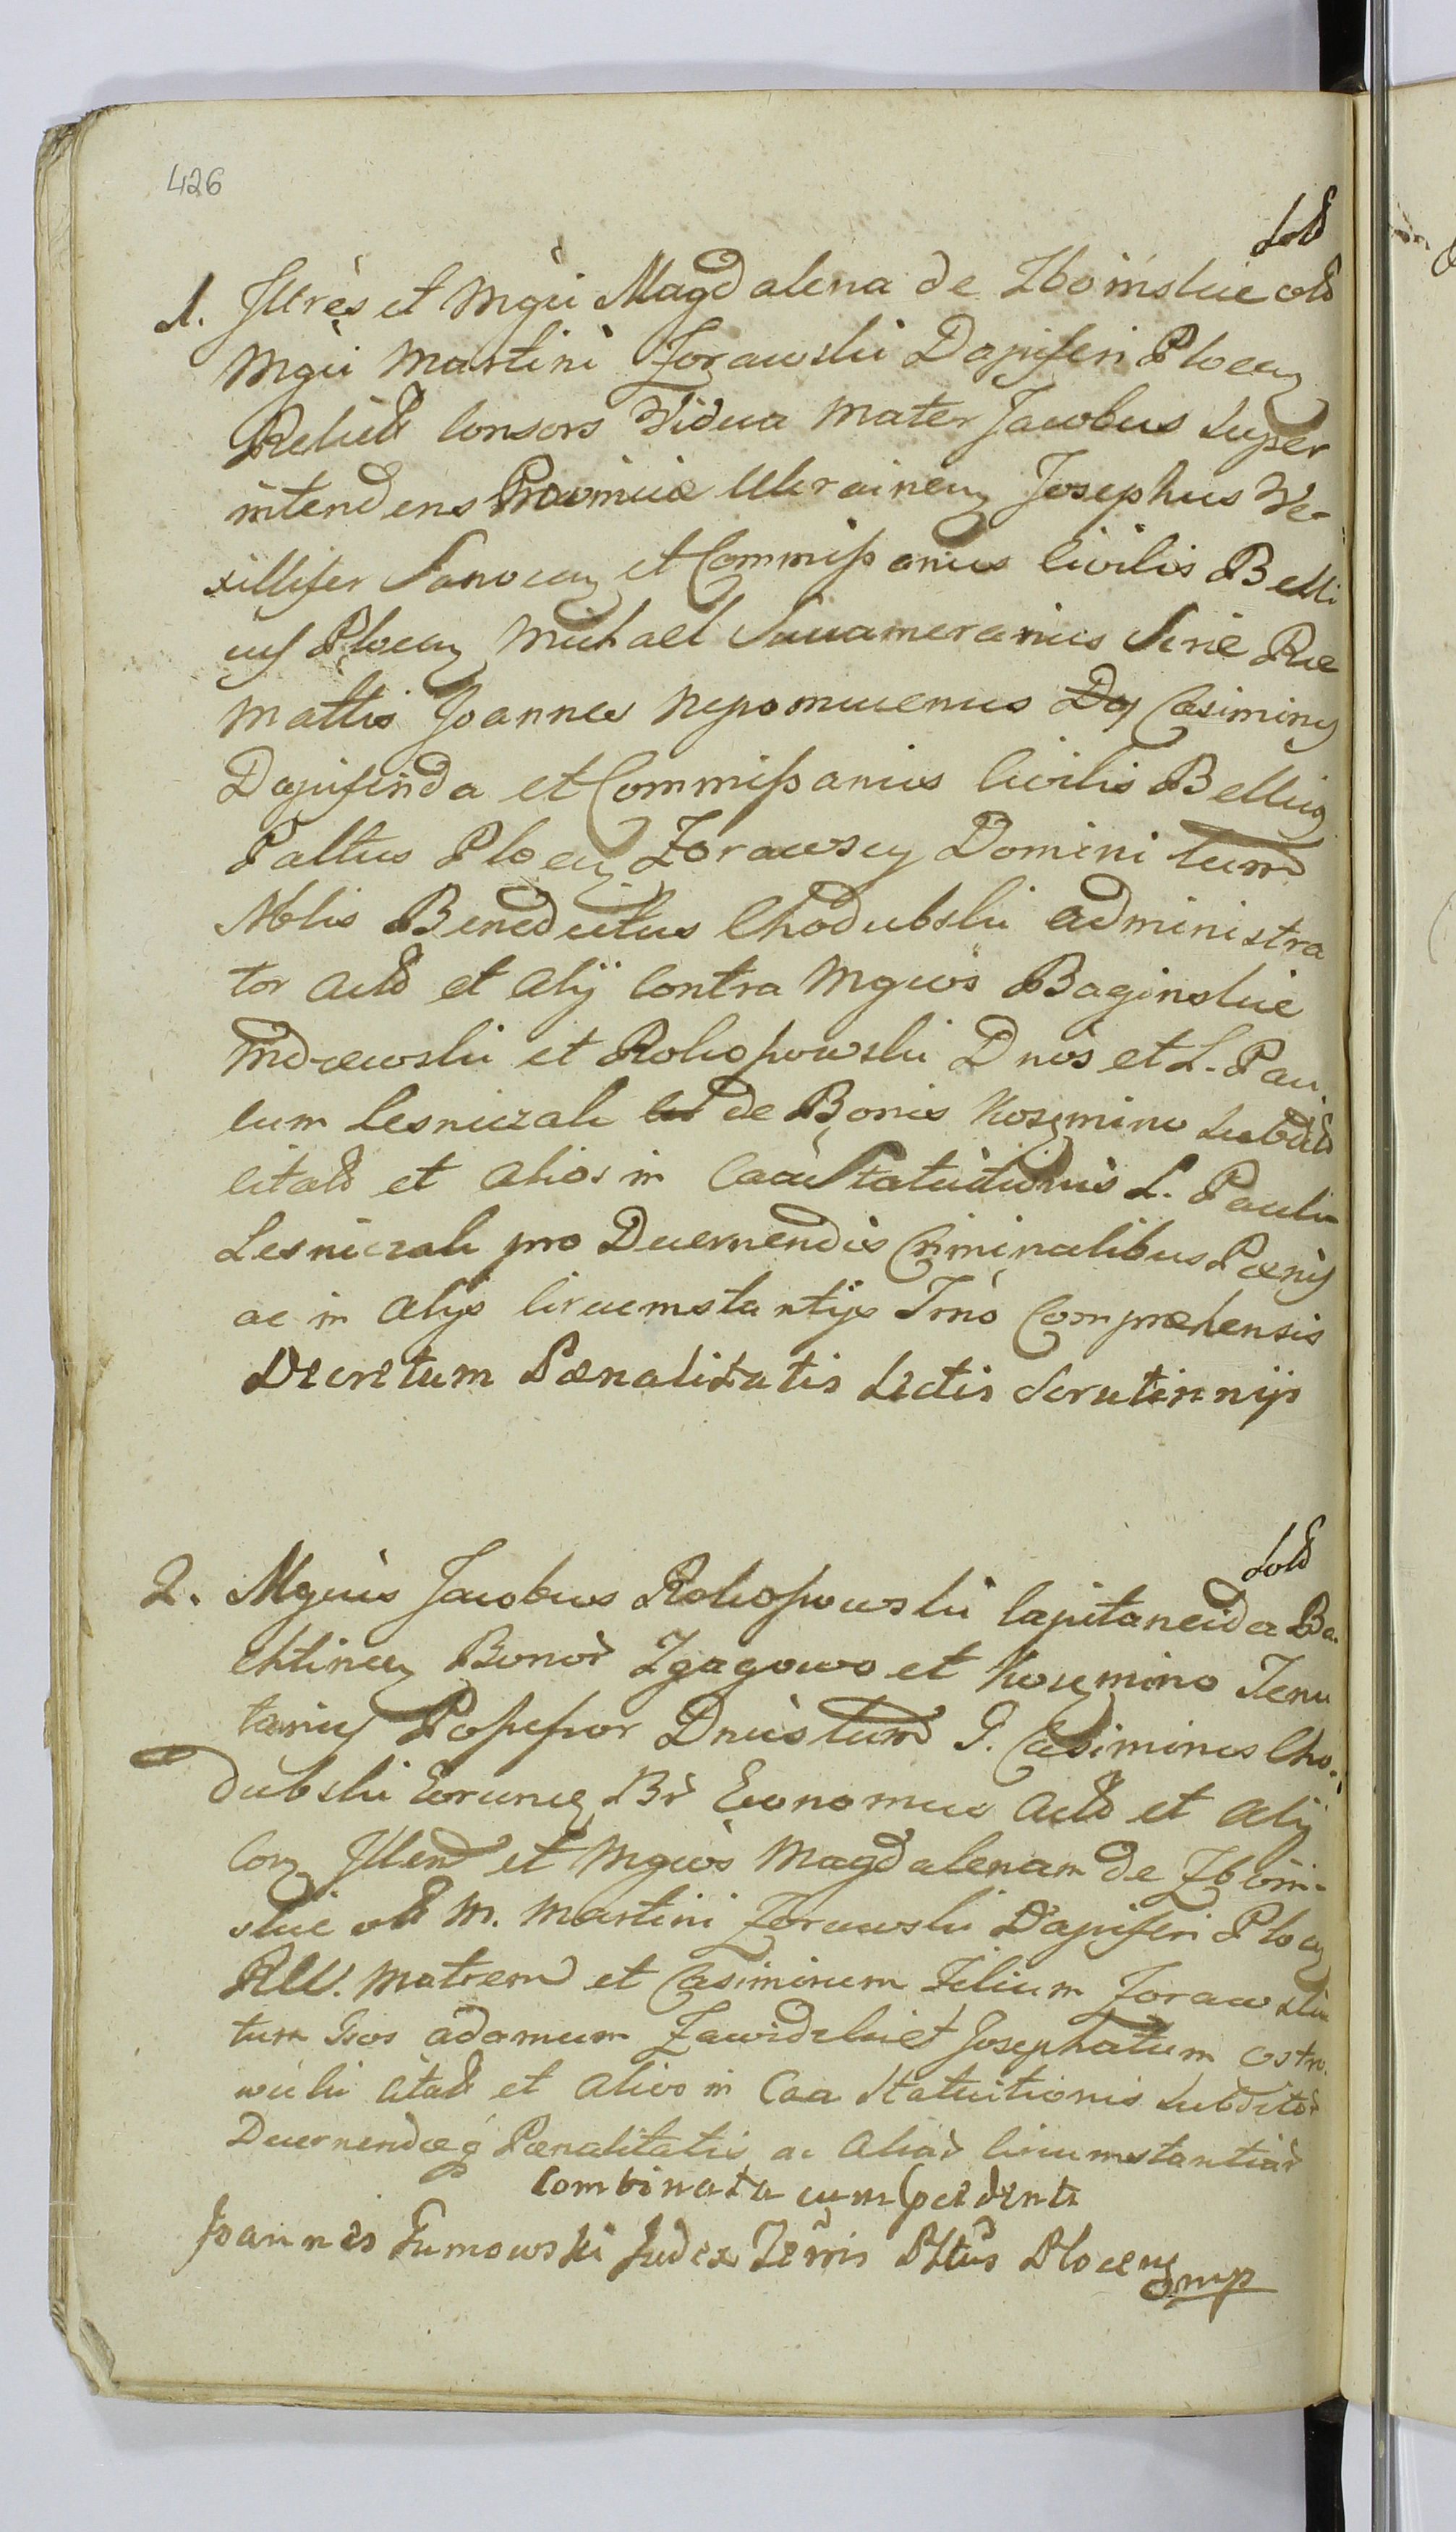 426
solt
1. Illres et Mgci Magdalena de Zboinskie olt
Mgci Martini Zorawski Dapiferi Plocen
Relict Consors Vidua Mater Jacobus Super
intendens Provinciæ Ukrainen Josephus Ve-
xillifer Sanocen et Commissarius Civilis Belli
cus Plocen Michael Succamerarius Srnæ Ræ
Mattis Joannes Nepomucenus Casimirus
Dapiferida et Commissarius Civilis Bellicus
Pallus Plocen Zorawscy Domini tum
Nblis Benedictus Chodubski administra
tor act et alij Contra Mgcos Baginskie
et Rokossowski Dnos et L. Pau-
lum Lesniczak de Bonis Kozmino subdit
citat et alios in Caa Statuitionis L. Pauli
Lesniczak pro Decernendis Criminalibus Pænis
ac in alijs Circumstantijs Trno Comprehensis
Decretum Pænalitatis Lectis Scrutinnijs
solt
2. Mgcus Jacobus Rokossowski Capitaneida Ba-
chtinen Bonor Zgagowo et Kozmino Tenu
tarius Possessor Dnus tum G. Casimirus Cho-
dubski Eorunq Br Economus act et alij
Con Illem et Mgcos Magdalenam de Zboin-
skie olt M. Martini Zorawski Dapiferi Plocen
Rel. Matrem et Casimirum Filium Zorawskie
tum Gsos adamum Zawidzki et Josephatum Ostro-
wicki citat et alios in Caa Statuitionis subditor
Decernendæq Pænalitatis ac aliar Circumstantiar
Combinata cum Præcedenti
Joannes Fumowski Judex Terris Pltus Plocens mp